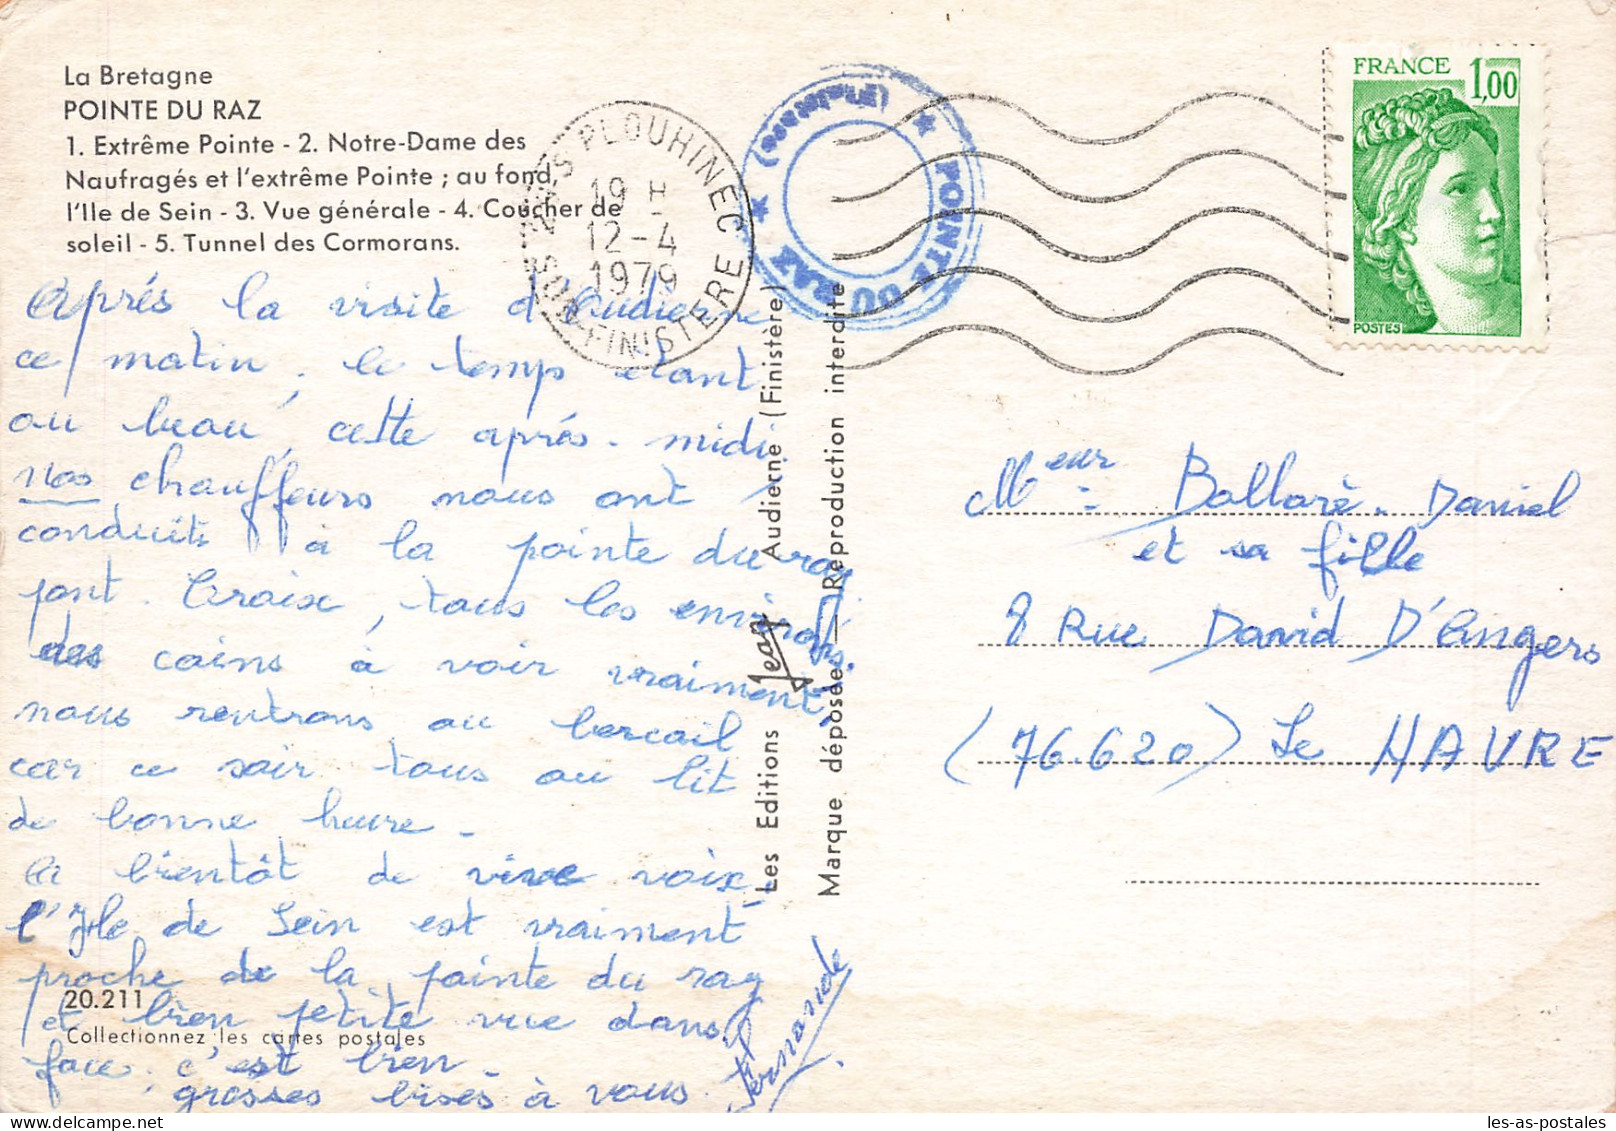 La Bretagne
POINTE DU RAZ
1. Extrême Pointe - 2. Notre-Dame des
Naufragés et l'extrême Pointe ; au fond,
l'Ile de Sein - 3. Vue générale - 4. Coucher de
soleil - 5. Tunnel des Cormorans.
Après la visite d'Audierne
ce matin, le temps étant
au beau, cette après-midi
nos chauffeurs nous ont
conduits à la pointe du raz
pont. Croix, tous les environs.
des coins à voir vraiment,
nous rentrons au bercail
car ce soir tous au lit
de bonne heure -
A bientôt de vive voix
l'Ile de Sein est vraiment
proche de la pointe du raz
et bien petite vue dans
face. c'est bien -
grosses bises à vous
Fernande
20.211
Collectionnez les cartes postales
PLOUHINEC
19 H
12-4
1979
SUD-FINISTERE
★ POINTE DU RAZ ★
(Finistère)
Les Editions Jean Audierne (Finistère)
Marque déposée — Reproduction interdite
FRANCE 1,00
POSTES
Meur Ballaré. Daniel
et sa fille
8 Rue David D'Angers
(76.620) Le HAVRE
les-as-postales.delcampe.net